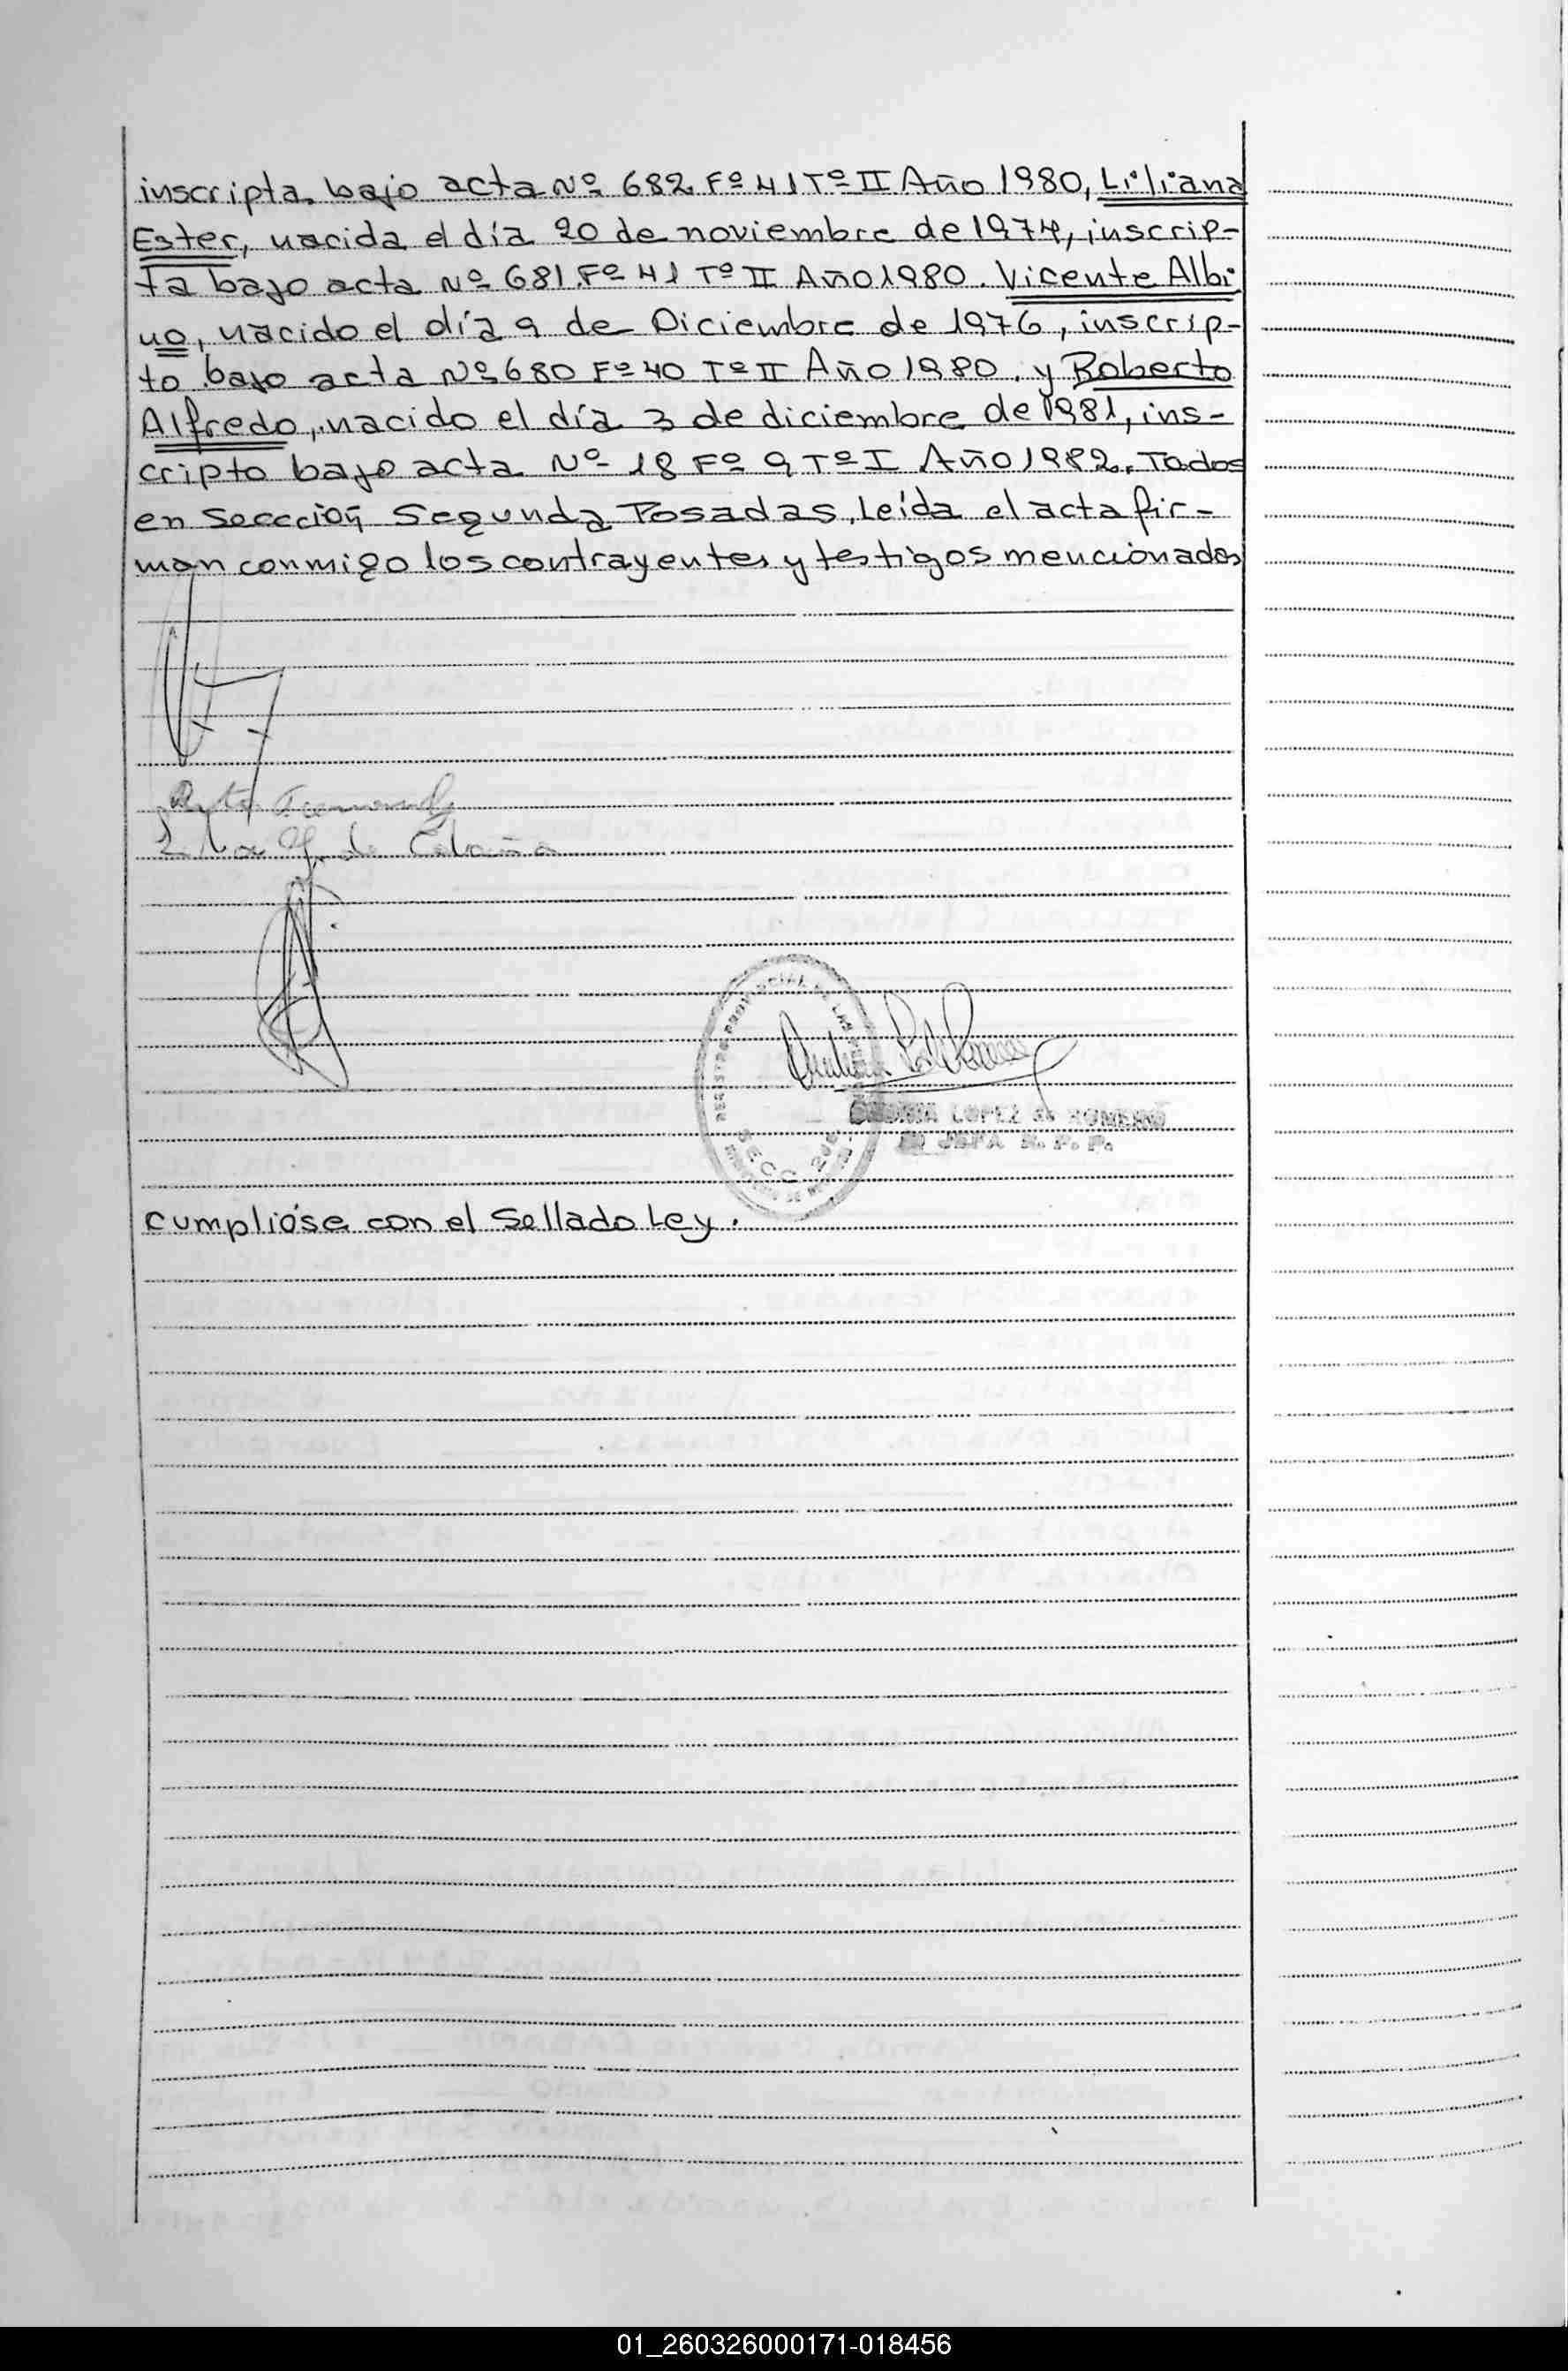 inscripta bajo acta Nº 682 Fº 41 Tº II Año 1980, Liliana
Ester, nacida el día 20 de noviembre de 1974, inscrip-
ta bajo acta Nº 681 Fº 41 Tº II Año 1980. Vicente Albi
no, nacido el día 9 de Diciembre de 1976, inscrip-
to bajo acta Nº 680 Fº 40 Tº II Año 1980. y Roberto
Alfredo, nacido el día 3 de diciembre de 1981, ins-
cripto bajo acta Nº 18 Fº 9 Tº I Año 1982. Todos
en Seccción Segunda Posadas. Leída el acta fir-
man conmigo los contrayentes y testigos mencionados
de
REGISTRO PROVINCIAL DE LAS
SECC. 2da
LOPEZ de ROMERO
JEFA R. P. P.
cumplióse con el Sellado Ley.
01_260326000171-018456